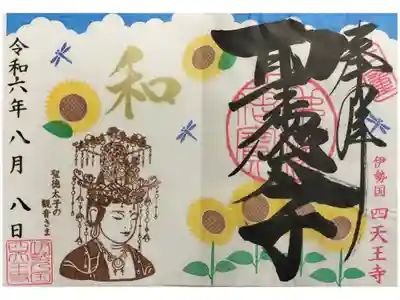 奉拝
聖徳太子
伊勢国 四天王寺
和
聖徳太子の
観音さま
令和六年 八月 八日